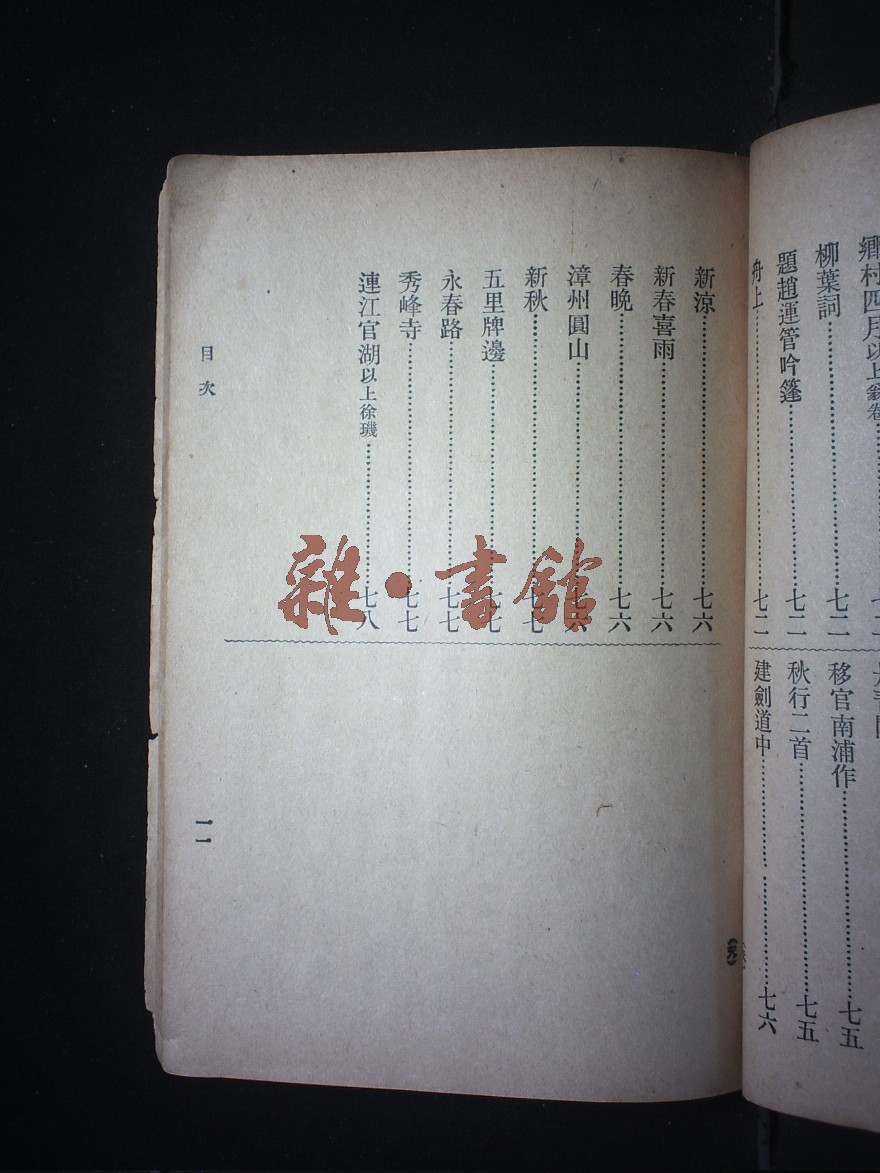 柳葉詞……七二
題趙運管吟篷……七二
舟上……七二
移官南浦作……七五
秋行二首……七五
建劍道中……七六
新涼……七六
新春喜雨……七六
春晚……七六
漳州圓山……七六
新秋……七七
五里牌邊……七七
永春路……七七
秀峰寺……七七
連江官湖以上徐璣……七八
目次
一一
雜·書館